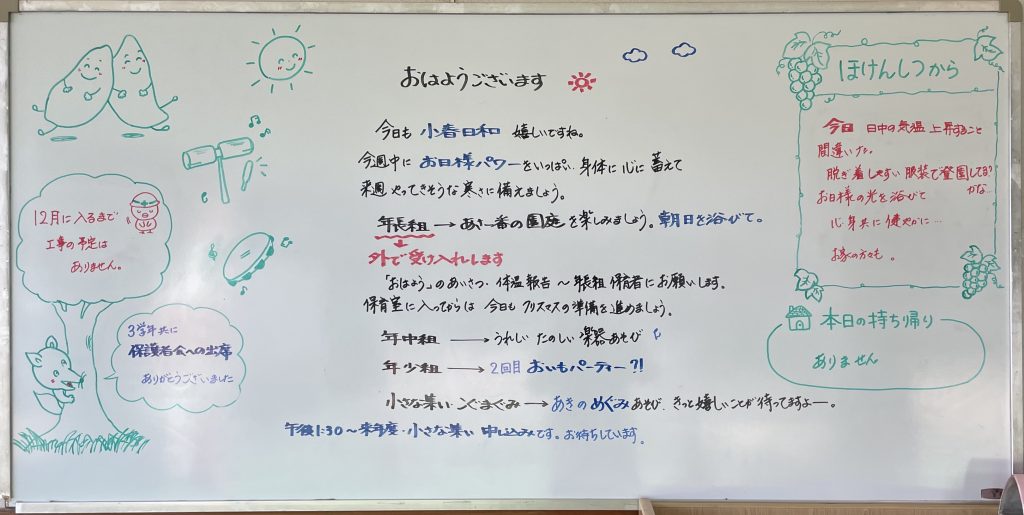 おはようございます
今日も 小春日和 嬉しいですね。
今週中に お日様パワーをいっぱい、身体に心に 蓄えて
来週 やってきそうな 寒さに備えましょう。
年長組 → あさ一番の園庭を楽しみましょう。朝日を浴びて。
外で受け入れします
「おはよう」のあいさつ・体温報告〜年長組 保育者にお願いします。
保育室に入ってからは 今日も クリスマスの準備を進めましょう。
年中組 → うれしい たのしい 楽器あそび
年少組 → 2回目 おいもパーティー?!
小さな集い → あきの めぐみあそび、きっと嬉しいことが待ってますよー。
午後1:30〜来年度・小さな集い 申し込みです。お待ちしています。
12月に入るまで
工事の予定は
ありません。
3学年共に
保護者会への出席
ありがとうございました
ほけんしつから
今日 日中の気温 上昇すること
間違いナシ。
脱ぎ着しやすい服装で登園してる?
かな…
お日様の光を浴びて
心身共に健やかに…
お家の方々も。
本日の持ち帰り
ありません